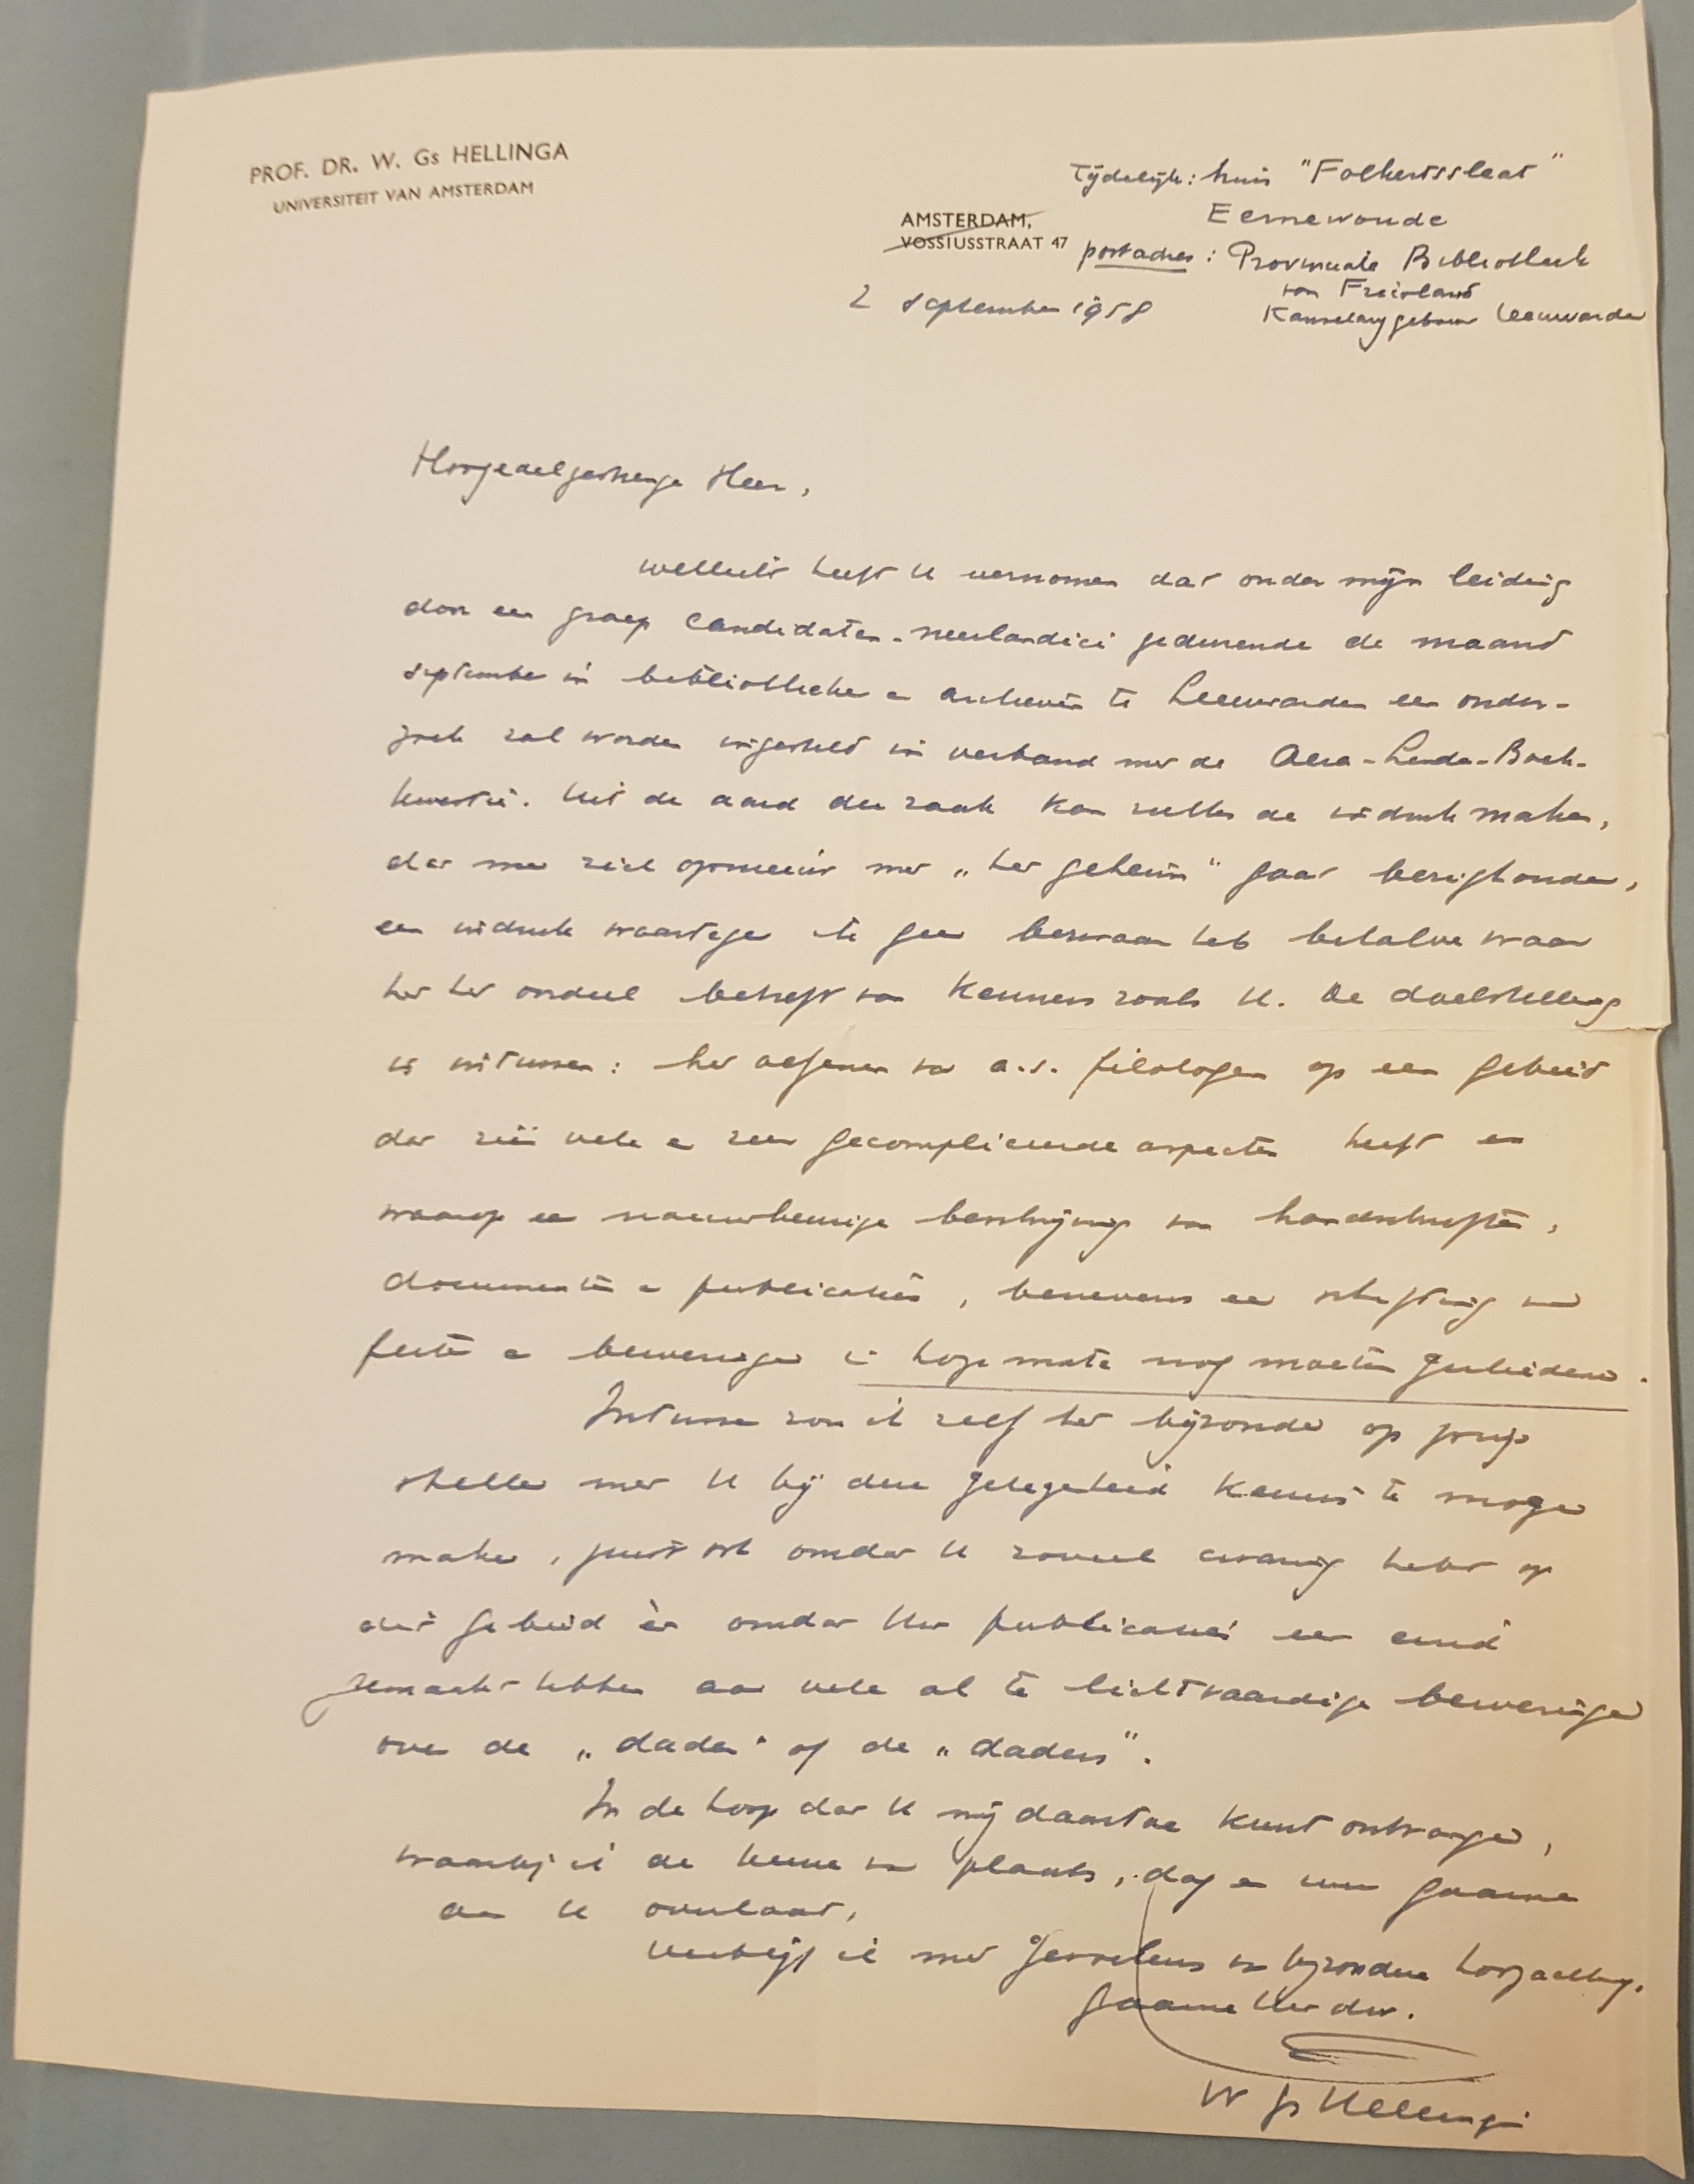 PROF. DR. W. Gs HELLINGA
UNIVERSITEIT VAN AMSTERDAM
Tijdelijk: huis "Folkertssleat"
Eernewoude
AMSTERDAM,
VOSSIUSSTRAAT 47
postadres: Provinciale Bibliotheek
van Friesland
Kanselarijgebouw Leeuwarden
2 september 1958
Hoogedelgestrenge Heer,
wellicht heeft U vernomen dat onder mijn leiding
door een groep candidaten-neerlandici gedurende de maand
september in bibliotheken en archieven te Leeuwarden een onder-
zoek zal worden ingesteld in verband met de Oera-Linda-Boek-
kwestie. Uit de aard der zaak kan zulks de indruk maken,
dat men zich opnieuw met „het geheim" gaat bezighouden,
een indruk waartegen ik geen bezwaar heb behalve waar
het het oordeel betreft van kenners zoals U. De doelstelling
is intussen: het oefenen van a.s. filologen op een gebied
dat zéér vele en zeer gecompliceerde aspecten heeft en
waarop een nauwkeurige beschrijving van handschriften,
documenten en publicaties, benevens een schifting van
feiten en beweringen in hoge mate nog moeten geschieden.
Intussen zou ik zelf het bijzonder op prijs
stellen met U bij deze gelegenheid kennis te mogen
maken, juist ook omdat U zoveel ervaring hebt op
dit gebied èn omdat Uw publicaties een eind
gemaakt hebben aan vele al te lichtvaardige beweringen
over de „dader" of de „daders".
In de hoop dat U mij daartoe kunt ontvangen,
waarbij ik de keuze van plaats, dag en uur gaarne
aan U overlaat,
verblijf ik met gevoelens van bijzondere hoogachting,
gaarne Uw dw.
W Gs Hellinga